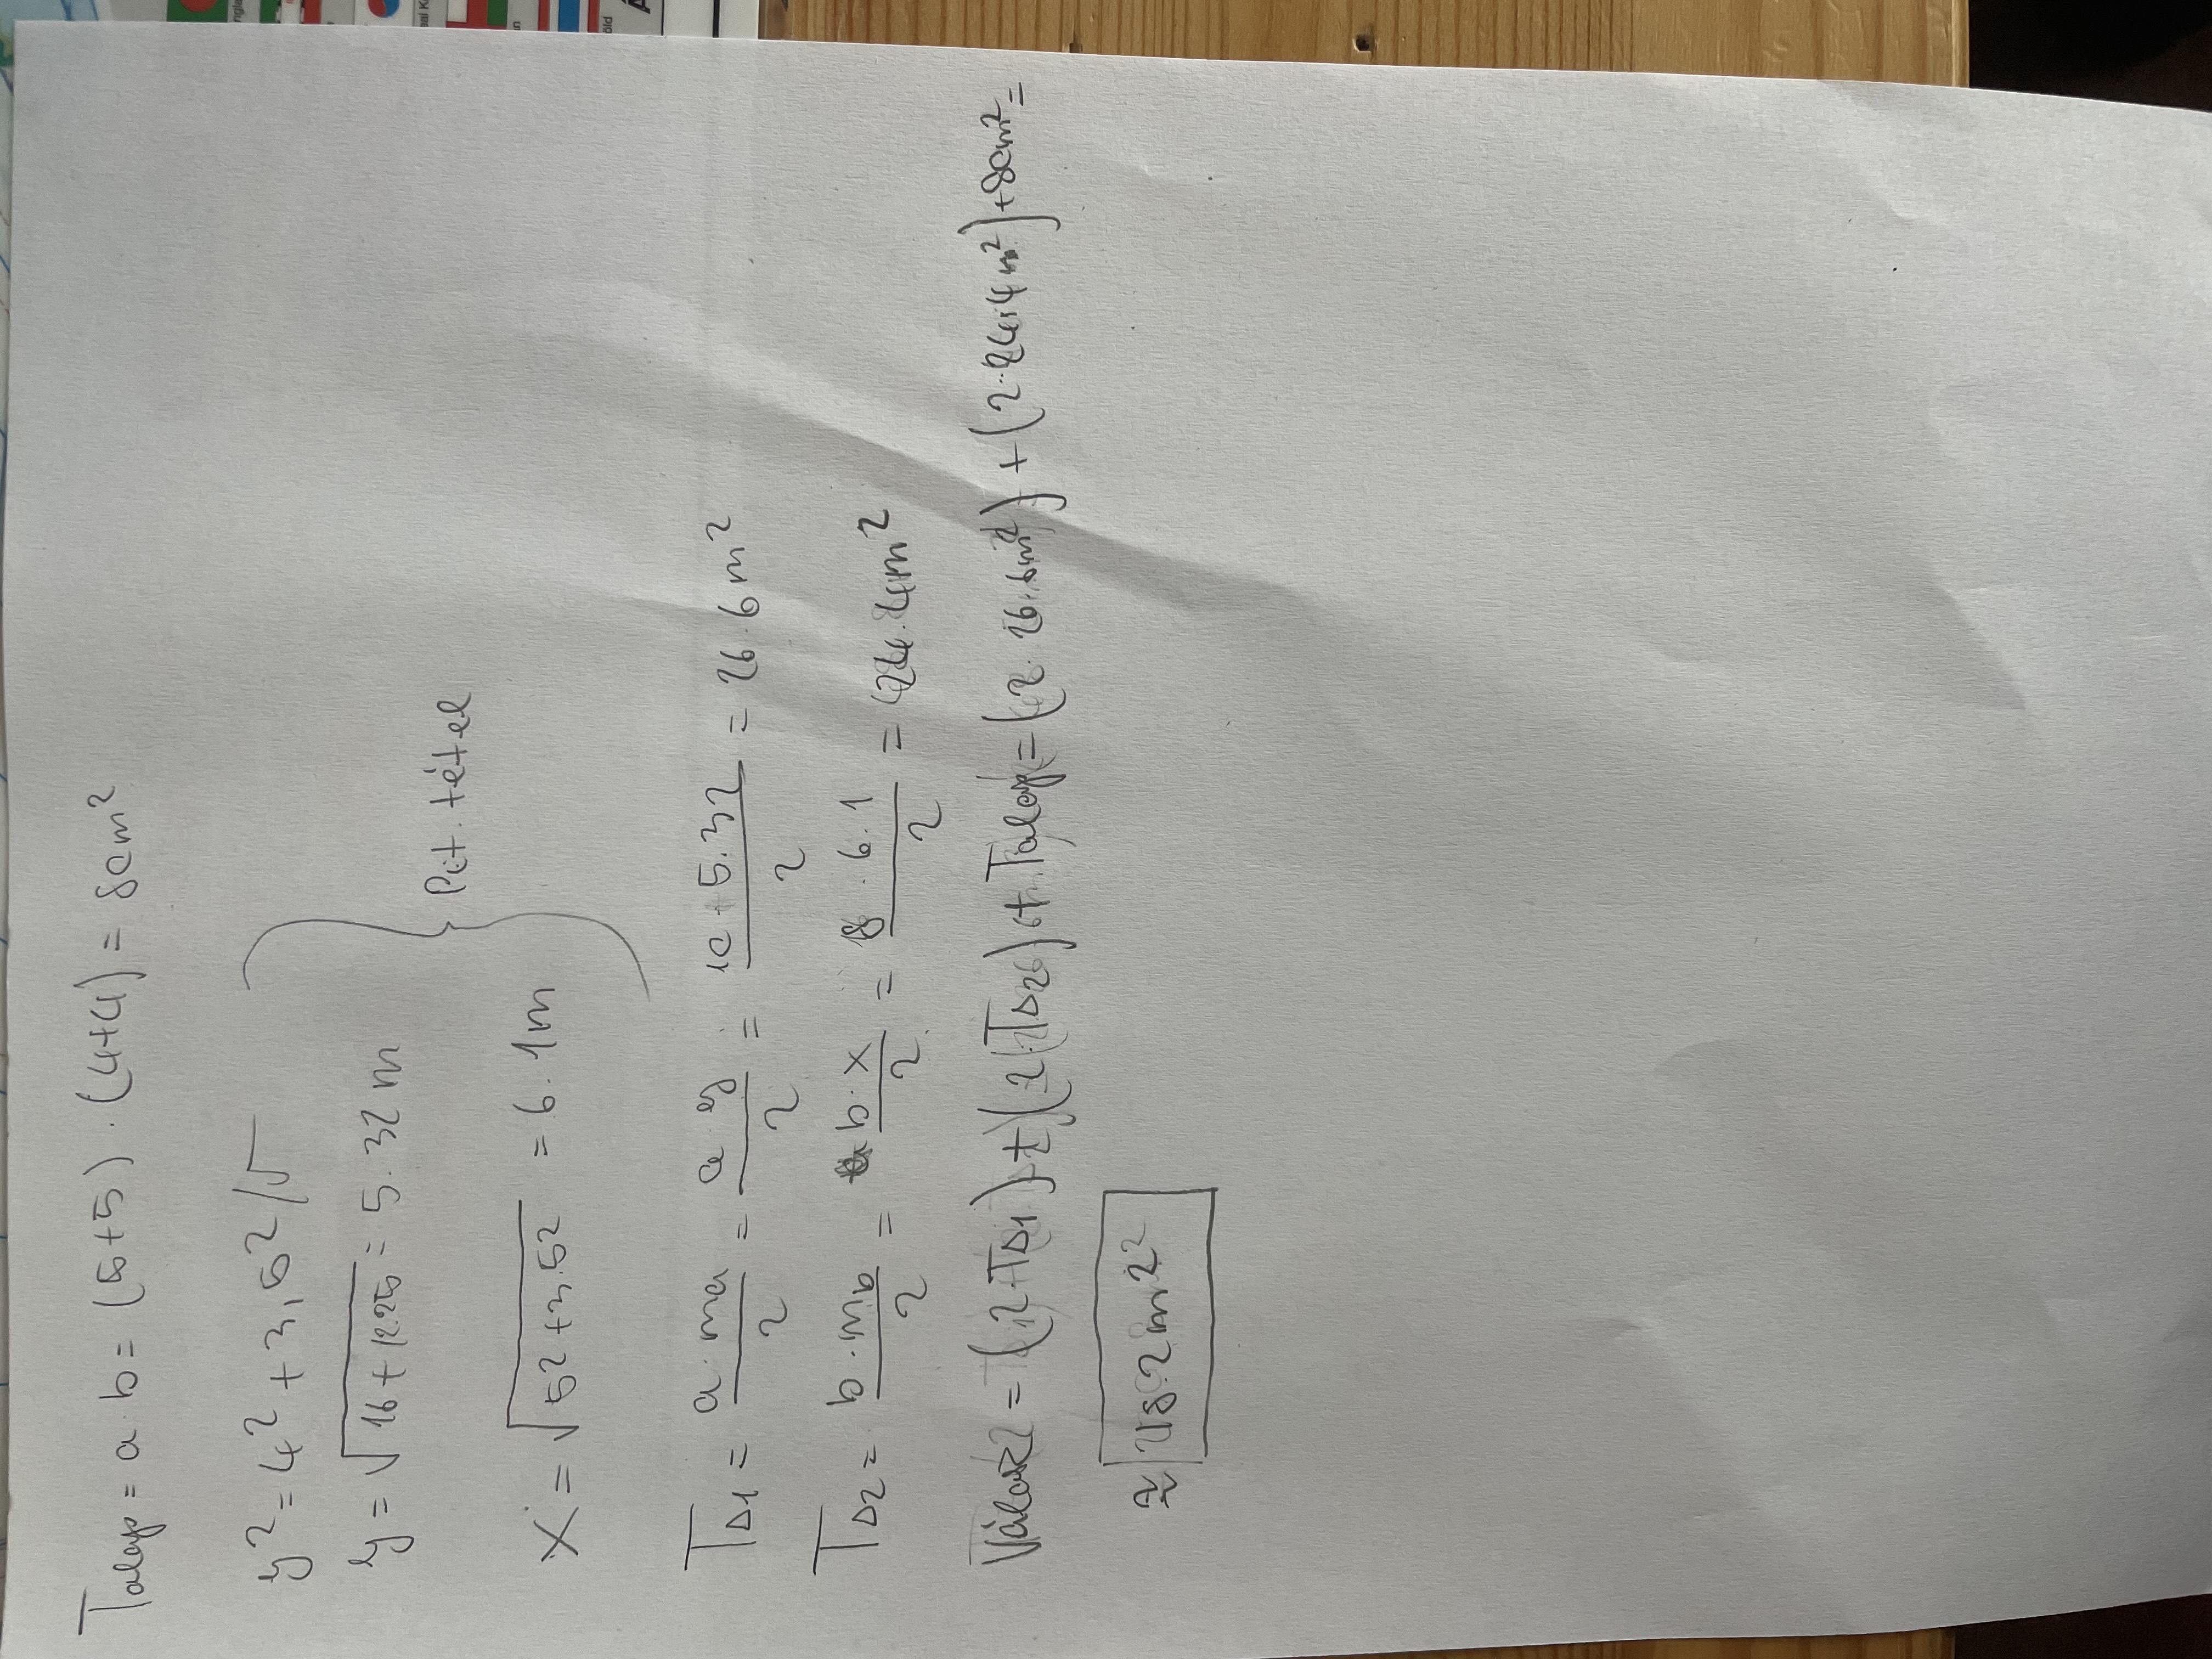 T alap = a·b = (5+5)·(4+4) = 80m²
y² = 4² + 3,5² /√
y = √16+12.25 = 5.32 m
Pit. tétel
x = √5²+3.5² = 6.1m
T△1 = a·ma/2 = a·y/2 = 10·5.32/2 = 26.6m²
T△2 = b·mb/2 = b·x/2 = 8·6.1/2 = 24.4m²
Válasz = (2·T△1) + (2·T△2) + Talap = (2·26.6m²) + (2·24.4m²)+80m² =
≈ 182m²